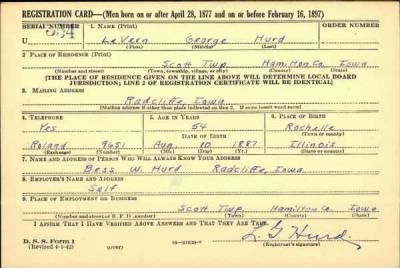 REGISTRATION CARD—(Men born on or after April 28, 1877 and on or before February 16, 1897)
SERIAL NUMBER 1. NAME (Print) ORDER NUMBER
LeVern George Hurd
(First) (Middle) (Last)
2. PLACE OF RESIDENCE (Print)
Scott Twp. Hamilton Co. Iowa
(Number and street) (Town, township, village, or city) (County) (State)
(THE PLACE OF RESIDENCE GIVEN ON THE LINE ABOVE WILL DETERMINE LOCAL BOARD
JURISDICTION; LINE 2 OF REGISTRATION CERTIFICATE WILL BE IDENTICAL)
3. MAILING ADDRESS
Radcliffe Iowa
(Mailing address if other than place indicated on line 2. If same insert word same)
4. TELEPHONE 5. AGE IN YEARS 6. PLACE OF BIRTH
Yes 54 Rochelle
DATE OF BIRTH (Town or county)
Roland 9651 Aug. 10 1887 Illinois
(Exchange) (Number) (Mo.) (Day) (Yr.) (State or country)
7. NAME AND ADDRESS OF PERSON WHO WILL ALWAYS KNOW YOUR ADDRESS
Bess W. Hurd Radcliffe, Iowa
8. EMPLOYER'S NAME AND ADDRESS
Self
9. PLACE OF EMPLOYMENT OR BUSINESS
Scott Twp. Hamilton Co. Iowa
(Number and street or R. F. D. number) (Town) (County) (State)
I AFFIRM THAT I HAVE VERIFIED ABOVE ANSWERS AND THAT THEY ARE TRUE.
D. S. S. Form 1
(Revised 4-1-42) (over) L G Hurd
(Registrant's signature)